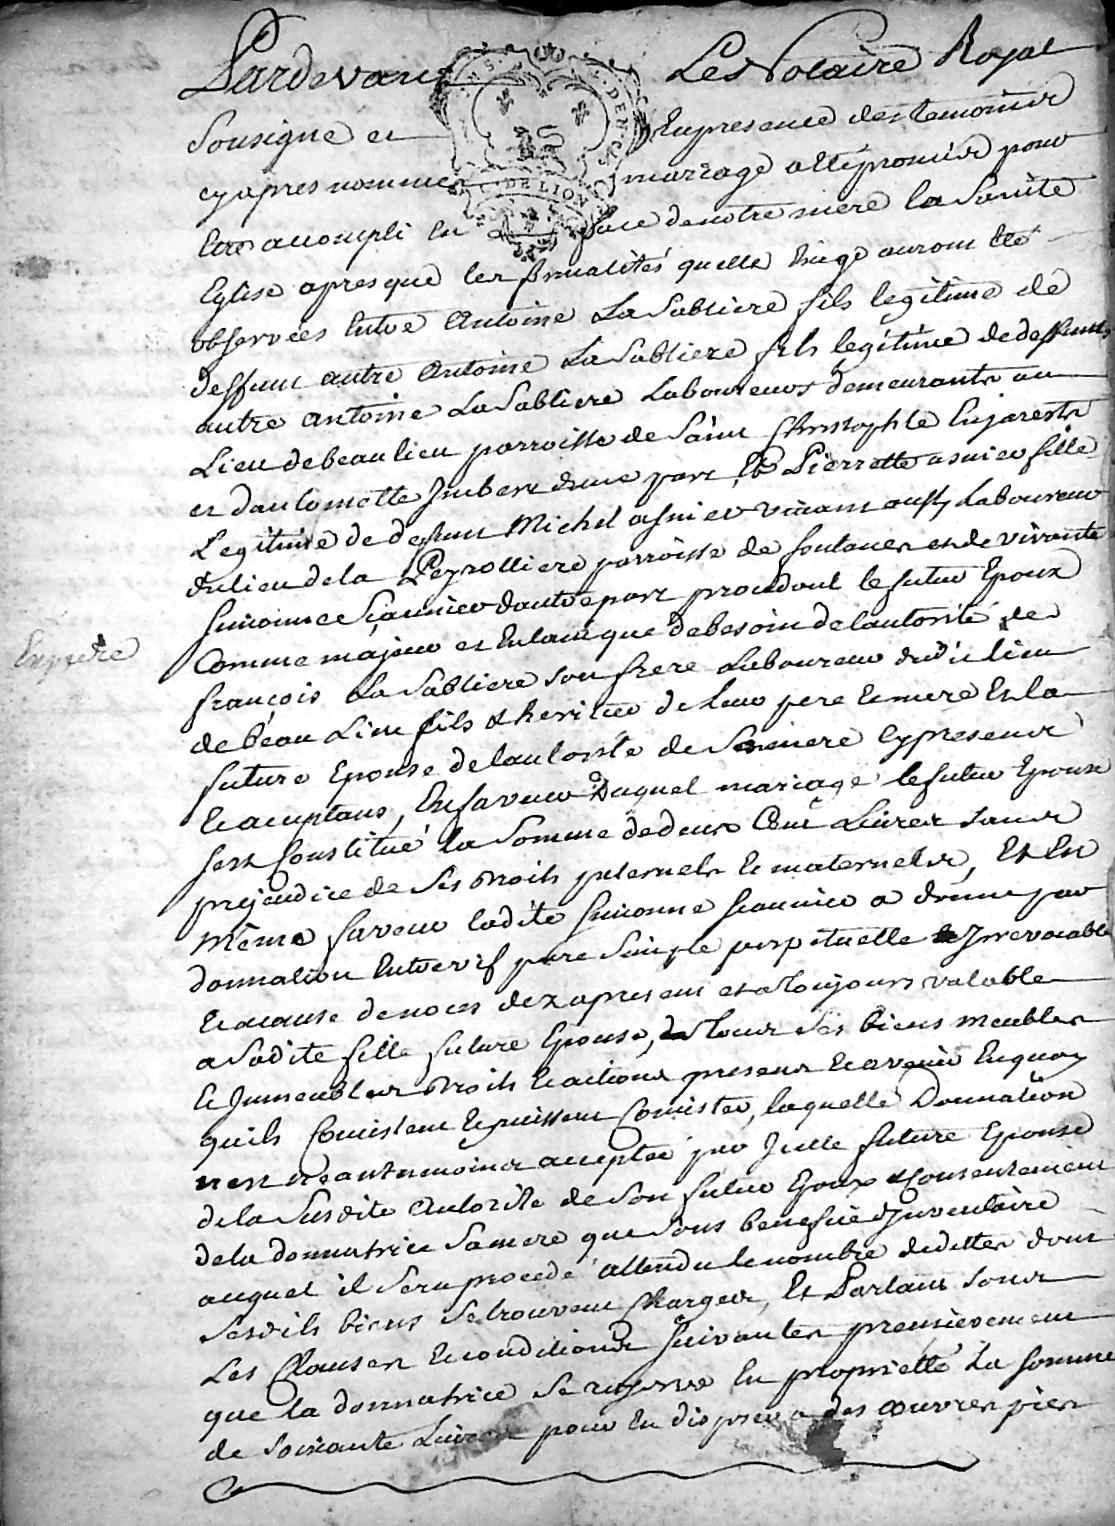 Pardevant Les Notaire Royal
Sousigné et En presence des temoins
cy apres nommes mariage a etté promis pour
Etre accompli en face de notre mere la Sainte
Eglise apres que les formalités quelle Exige auront été
observées Entre Antoine La Sabliere fils legitime de
deffunt autre Antoine La Sabliere fils legitime de deffunts
autre antoine La Sabliere Laboureurs demeurants au
Lieu de beaulieu parroisse de Saint Christophle En jarest
et dantoinette Imbert dune part, Et Pierrette asnier fille
Legitime de deffunt Michel asnier vivant aussy Laboureur
du lieu de la Peyrolliere parroisse de fontanes et de vivante
Simonne Jeannier dautre part procedant le futur Epoux
Comme majeur et En tant que de besoin de lautorité de
françois La Sabliere son frere Laboureur dudit lieu
de beau Lieu fils & heritier de leur pere et mere Et la
future Epouse de lautorité de Sa mere Cy presents
Et acceptans, En faveur Duquel mariage le futur Epoux
sest Constitué la Somme de deux Cent Livres sans
prejudice de Ses droits paternels et maternels, Et En
même faveur ladite Simonne Jeannier a donné par
donnation Entre vif pure Simple perpetuelle & Irrevocable
Et a cause de noces dez apresent et a Toujours valable
a Sadite fille future Epouse, de Tous Ses biens Meubles
Et Immeubles droits Et actions presens Et avenir En quoy
quils Consistent Et puissent Consister, laquelle Donnation
nest neantmoins acceptée par Icelle future Epouse
de la Susdite autorité de Son futur Epoux & Consentement
de la donnatrice Sa mere que Sous benefice dInventaire
auquel il Sera procedé attendu le nombre de dettes dont
Sesdits biens Se trouvent Chargés, Et Partant sous
Les Clauses Et conditions suivantes premierement
que la donnatrice Se reserve En proprietté la somme
de soixante Livres pour En disposer a des œuvres pies
DE LION